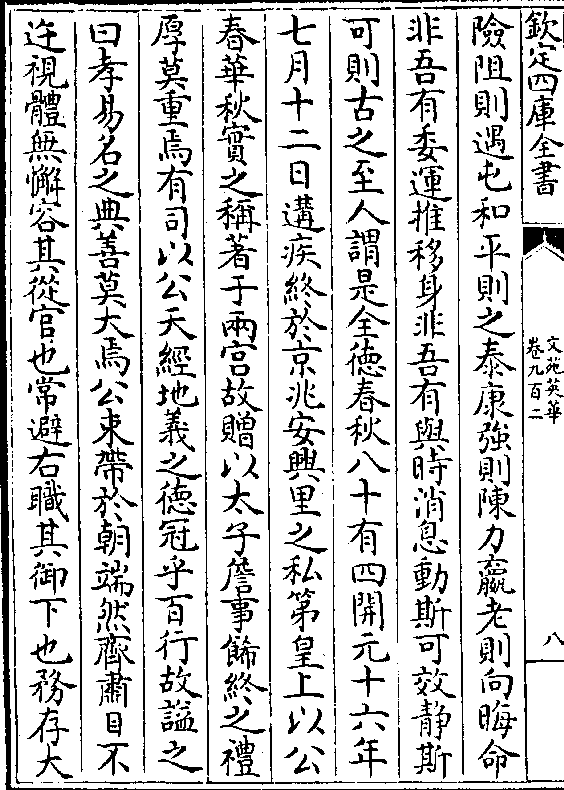 欽定四庫全書
文苑英華
卷九百二
八
險阻則遇屯和平則之泰康強則陳力羸老則向晦命
非吾有委運推移身非吾有與時消息動斯可效静斯
可則古之至人謂是全徳春秋八十有四開元十六年
七月十二日遘疾終於京兆安興里之私第皇上以公
春華秋實之稱著于兩宫故贈以太子詹事飾終之禮
厚莫重焉有司以公天經地義之徳冠乎百行故謚之
曰孝易名之典善莫大焉公束帶於朝端然齊肅目不
迕視體無懈容其從官也常避右職其御下也務存大